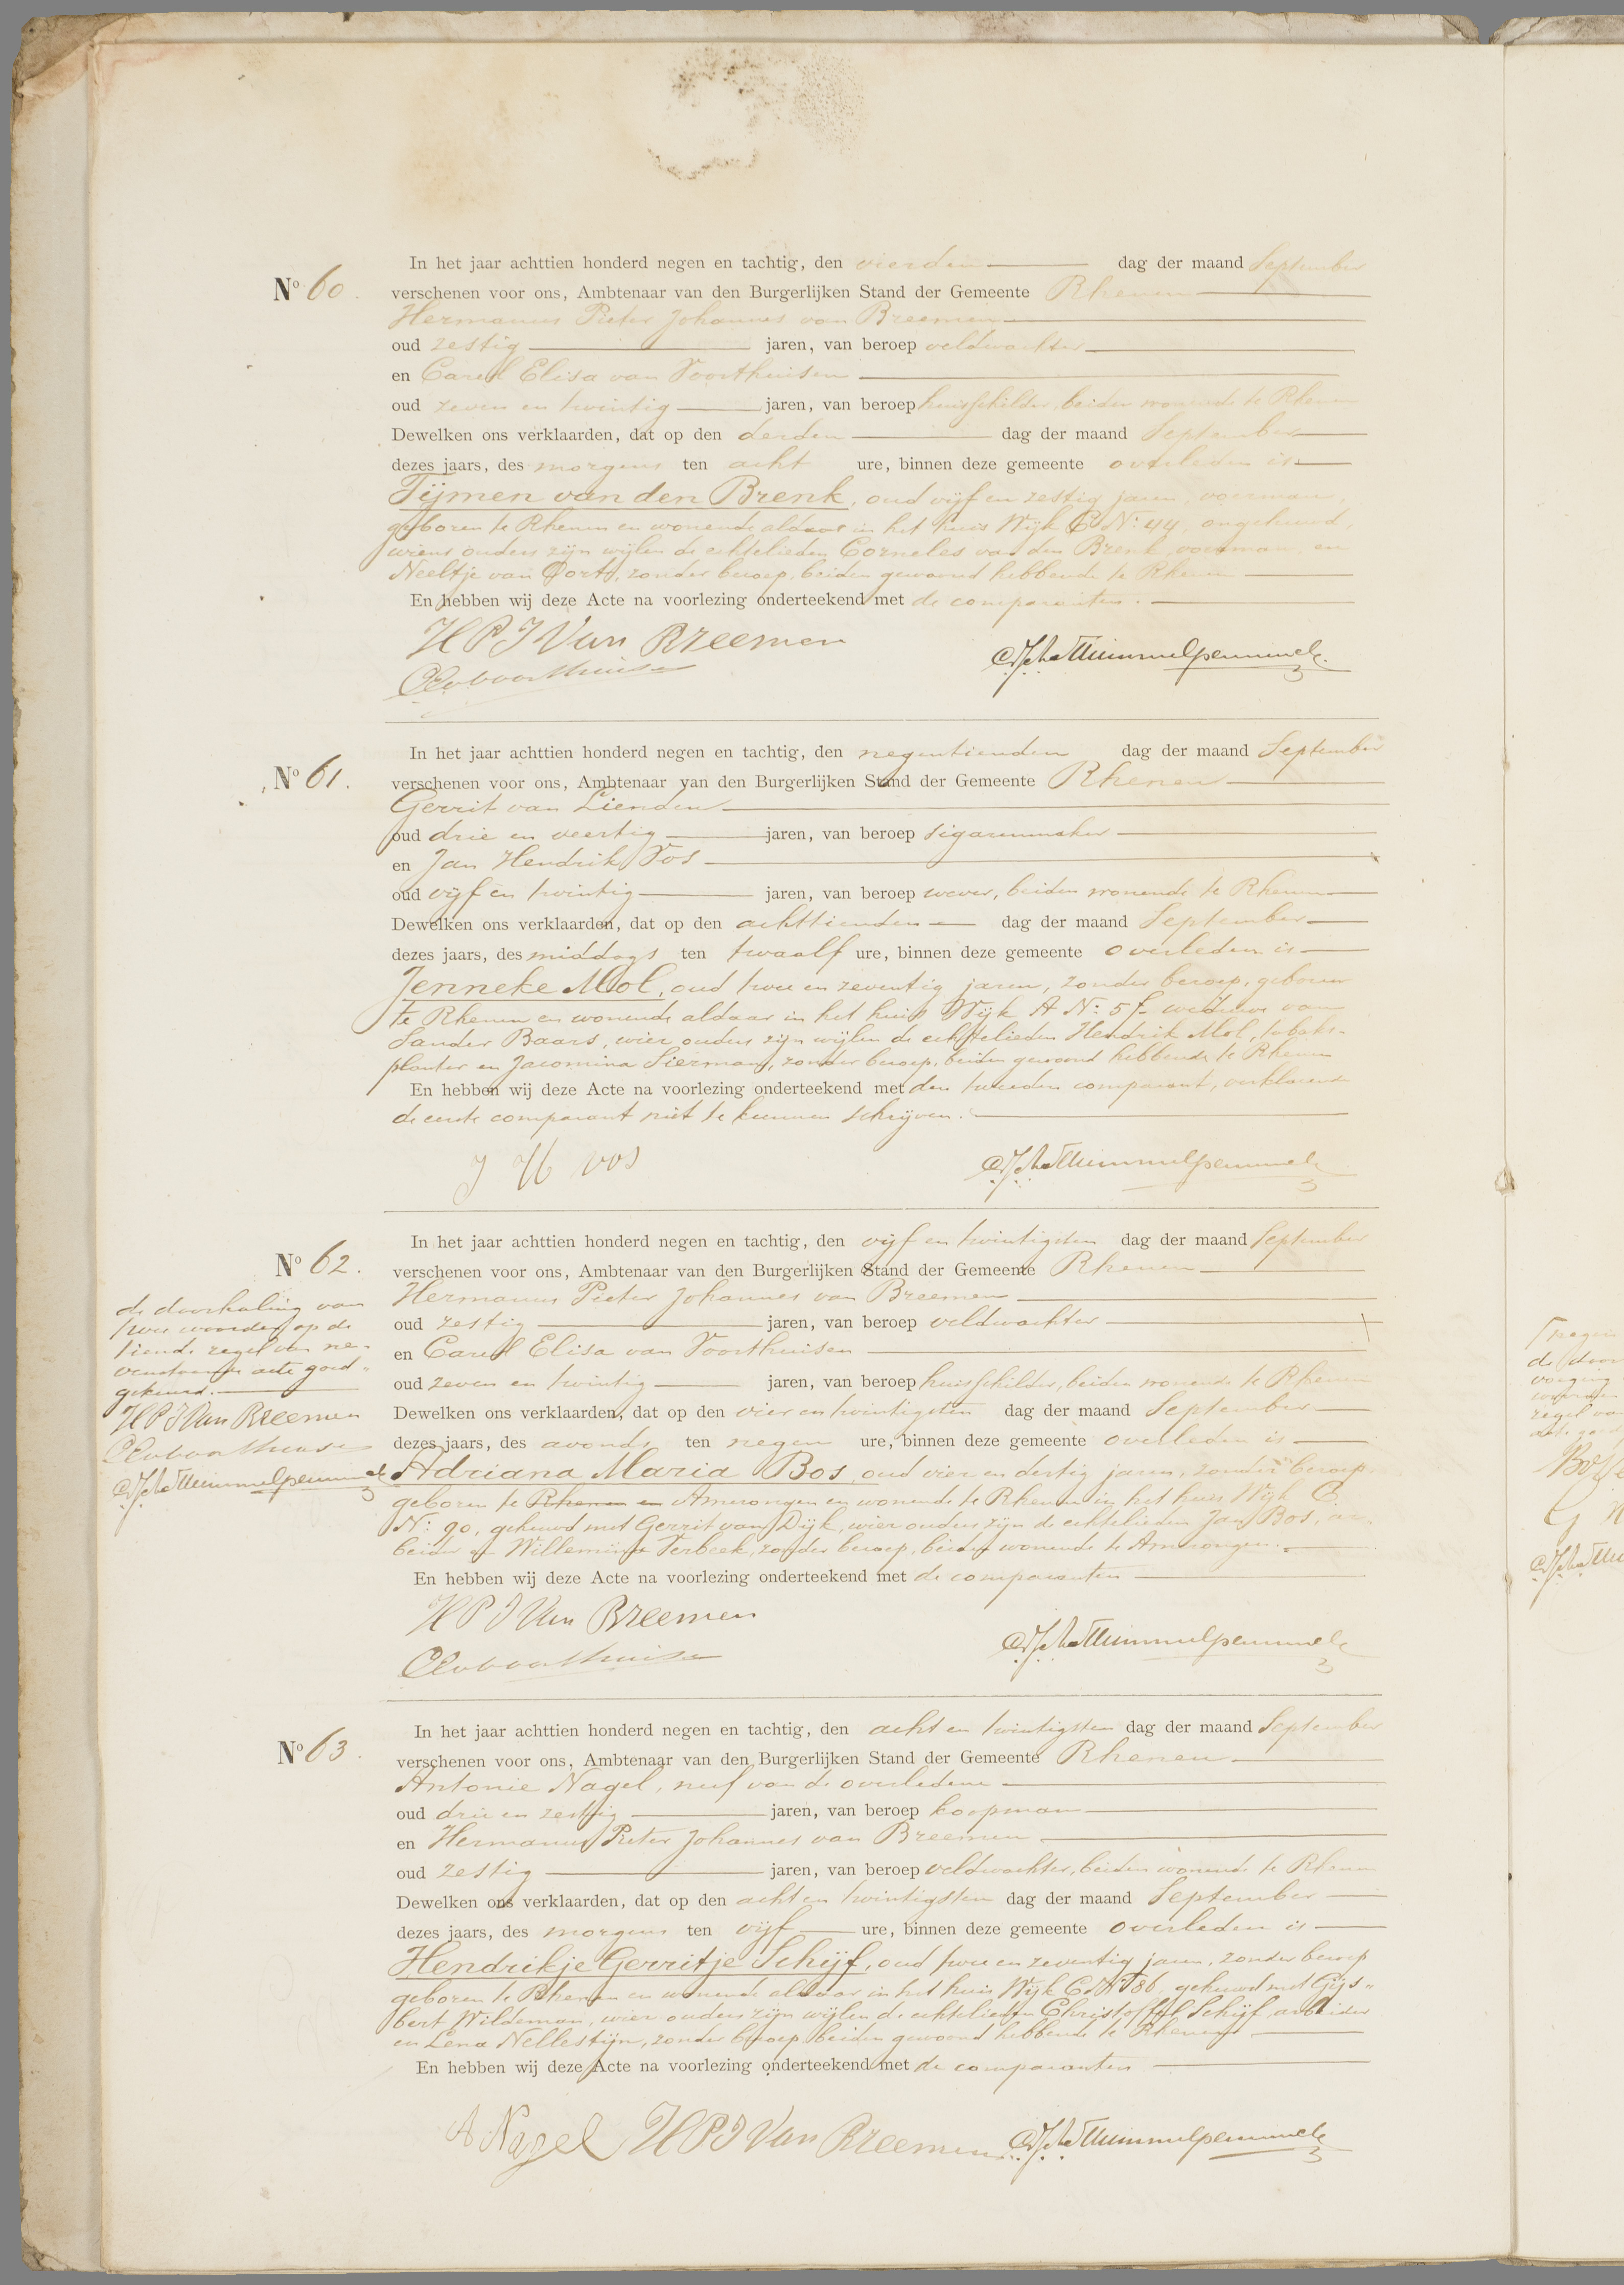 In het jaar achttien honderd negen en tachtig, den vierden dag der maand September
No 60. verschenen voor ons, Ambtenaar van den Burgerlijken Stand der Gemeente Rhenen
Hermanus Pieter Johannes van Breemen
oud zestig jaren, van beroep veldwachter
en Carel Elisa van Voorthuisen
oud zeven en twintig jaren, van beroep huisschilder, beiden wonende te Rhenen
Dewelken ons verklaarden, dat op den derden dag der maand September
dezes jaars, des morgens ten acht ure, binnen deze gemeente overleden is
Tijmen van den Brenk, oud vijf en zestig jaren, voerman,
geboren te Rhenen en wonende aldaar in het huis Wijk C No: 44, ongehuwd,
wiens ouders zijn wijlen de echtelieden Corneles van den Brenk, voerman, en
Neeltje van Oort, zonder beroep, beiden gewoond hebbende te Rhenen
En hebben wij deze Acte na voorlezing onderteekend met de comparanten.
H P J Van Breemen
CE v voorthuisen
In het jaar achttien honderd negen en tachtig, den negentienden dag der maand September
No 61. verschenen voor ons, Ambtenaar van den Burgerlijken Stand der Gemeente Rhenen
Gerrit van Lienden
oud drie en veertig jaren, van beroep sigarenmaker
en Jan Hendrik Vos
oud vijf en twintig jaren, van beroep wever, beiden wonende te Rhenen
Dewelken ons verklaarden, dat op den achttienden dag der maand September
dezes jaars, des middags ten twaalf ure, binnen deze gemeente overleden is
Jenneke Mol, oud twee en zeventig jaren, zonder beroep, geboren
te Rhenen en wonende aldaar in het huis Wijk A No: 5 weduwe van
Sander Baars, wier ouders zijn wijlen de echtelieden Hendrik Mol, tabaks-
planter en Jacomina Sierman, zonder beroep, beiden gewoond hebbende te Rhenen
En hebben wij deze Acte na voorlezing onderteekend met den tweeden comparant, verklarende
de eerste comparant niet te kunnen schrijven.
J H vos
In het jaar achttien honderd negen en tachtig, den vijf en twintigsten dag der maand September
No 62. verschenen voor ons, Ambtenaar van den Burgerlijken Stand der Gemeente Rhenen
Hermanus Pieter Johannes van Breemen
oud zestig jaren, van beroep veldwachter
en Carel Elisa van Voorthuisen
oud zeven en twintig jaren, van beroep huisschilder, beiden wonende te Rhenen
Dewelken ons verklaarden, dat op den vier en twintigsten dag der maand September
dezes jaars, des avonds ten negen ure, binnen deze gemeente overleden is
Adriana Maria Bos, oud vier en dertig jaren, zonder beroep,
geboren te Rhenen en Amerongen en wonende te Rhenen in het huis Wijk C
No: 90, gehuwd met Gerrit van Dijk, wier ouders zijn de echtelieden Jan Bos, ar-
beider en Willemina Verbeek, zonder beroep, beiden wonende te Amerongen.
En hebben wij deze Acte na voorlezing onderteekend met de comparanten
H P J Van Breemen
CE v voorthuisen
de doorhaling van
twee woorden op de
tiende regel van ne-
venstaande acte goed-
gekeurd.
H P J Van Breemen
CE v voorthuisen
In het jaar achttien honderd negen en tachtig, den acht en twintigsten dag der maand September
No 63. verschenen voor ons, Ambtenaar van den Burgerlijken Stand der Gemeente Rhenen
Antonie Nagel, neef van de overledene
oud drie en zestig jaren, van beroep koopman
en Hermanus Pieter Johannes van Breemen
oud zestig jaren, van beroep veldwachter, beiden wonende te Rhenen
Dewelken ons verklaarden, dat op den acht en twintigsten dag der maand September
dezes jaars, des morgens ten vijf ure, binnen deze gemeente overleden is
Hendrikje Gerritje Schijf, oud twee en zeventig jaren, zonder beroep
geboren te Rhenen en wonende aldaar in het huis Wijk C No 86, gehuwd met Gijs-
bert Wildeman, wier ouders zijn wijlen de echtelieden Christoffel Schijf, arbeider
en Lena Nellestijn, zonder beroep beiden gewoond hebbende te Rhenen
En hebben wij deze Acte na voorlezing onderteekend met de comparanten
A Nagel H P J Van Breemen